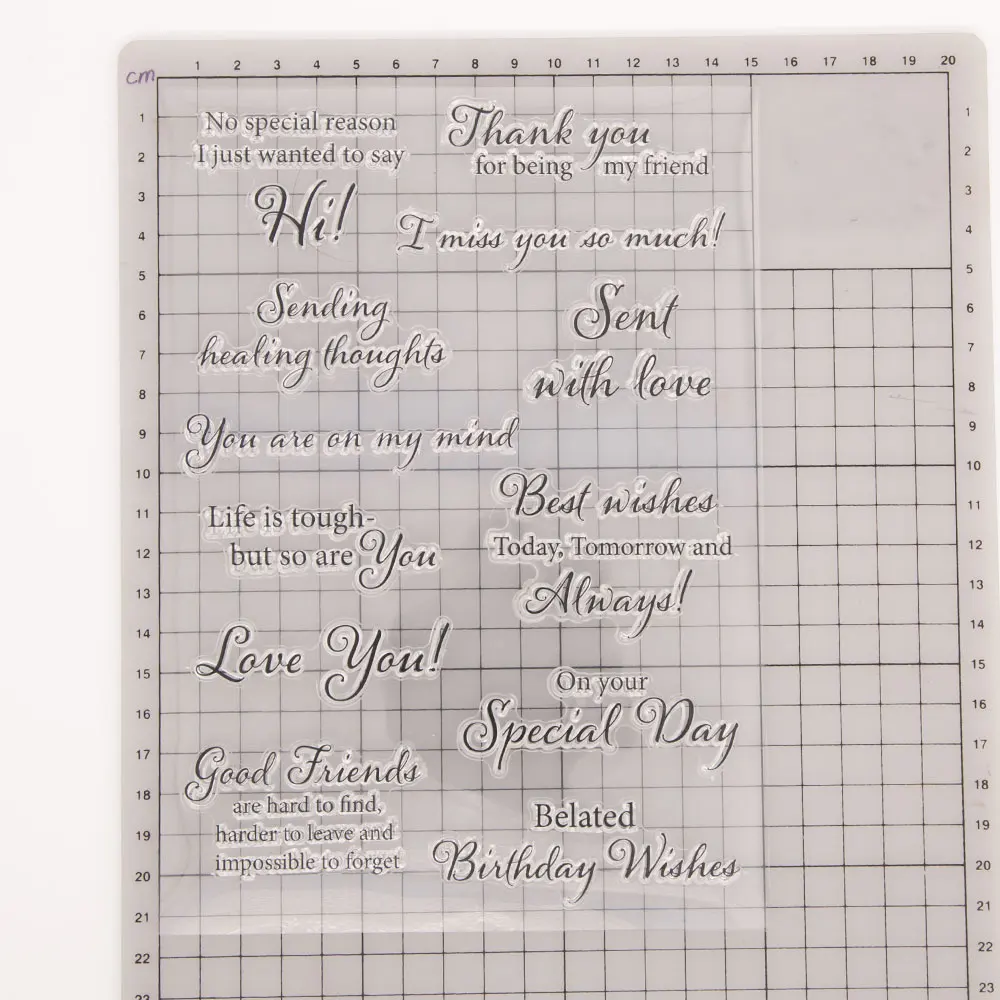 cm
1 2 3 4 5 6 7 8 9 10 11 12 13 14 15 16 17 18 19 20
1 2 3 4 5 6 7 8 9 10 11 12 13 14 15 16 17 18 19 20 21 22 23
No special reason
I just wanted to say
Hi!
Thank you
for being my friend
I miss you so much!
Sending
healing thoughts
Sent
with love
You are on my mind
Best wishes
Today, Tomorrow and
Always!
Life is tough-
but so are You
Love You!
On your
Special Day
Good Friends
are hard to find,
harder to leave and
impossible to forget
Belated
Birthday Wishes
1 2 3 4 5 6 7 8 9 10 11 12 13 14 15 16 17 18 19 20 21 22 23